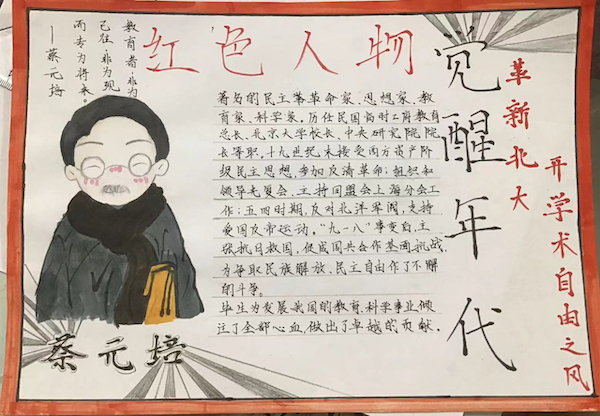 教育者,非为
已往,非为现
而专为将来。
——蔡元培
红色人物
著名的民主革命家、思想家、教
育家、科学家。历任民国临时工府教育
总长、北京大学校长、中央研究院院
长等职,十九世纪末接受西方资产阶
级民主思想,参加反清革命;组织和
领导光复会、主持同盟会上海分会工
作;五四时期,反对北洋军阀,支持
爱国反帝运动。“九一八”事变后,主
张抗日救国,促成国共合作基础抗战
为争取民族解放、民主自由作了不懈
的斗争。
毕生为发展我国的教育、科学事业倾
注了全部心血,做出了卓越的贡献。
觉醒年代
革新北大
开学术自由之风
蔡元培